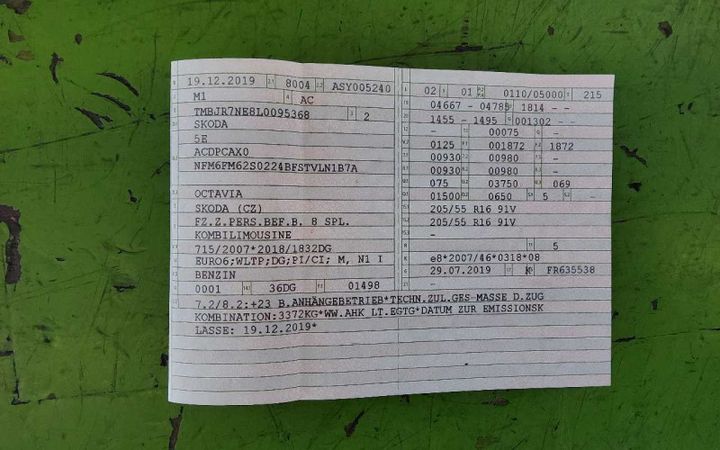 19.12.2019 8004 ASY005240
M1 AC
TMBJR7NE8L0095368 2
SKODA
5E
ACDPCAX0
NFM6FM62S0224BFSTVLN1B7A
OCTAVIA
SKODA (CZ)
FZ.Z.PERS.BEF.B. 8 SPL.
KOMBILIMOUSINE
715/2007*2018/1832DG
EURO6;WLTP;DG;PI/CI; M, N1 I
BENZIN
0001 36DG 01498
7.2/8.2:+23 B.ANHÄNGEBETRIEB*TECHN.ZUL.GES-MASSE D.ZUG
KOMBINATION:3372KG*WW.AHK LT.EGTG*DATUM ZUR EMISSIONSK
LASSE: 19.12.2019*
02 01 0110/05000 215
04667 - 04785 1814 - -
1455 - 1495 001302 - -
- 00075 -
0125 001872 1872
00930 00980 -
00930 00980 -
075 03750 069
01500 0650 5 -
205/55 R16 91V
205/55 R16 91V
-
- 5
e8*2007/46*0318*08
29.07.2019 K FR635538